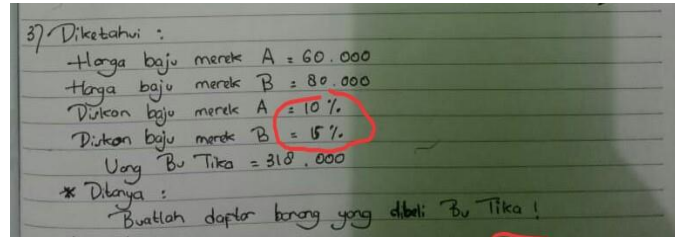 3) Diketahui :
Harga baju merek A = 60.000
Harga baju merek B = 80.000
Diskon baju merek A = 10 %
Diskon baju merek B = 15 %
Uang Bu Tika = 318.000
* Ditanya :
Buatlah daptar barang yang dibeli Bu Tika !